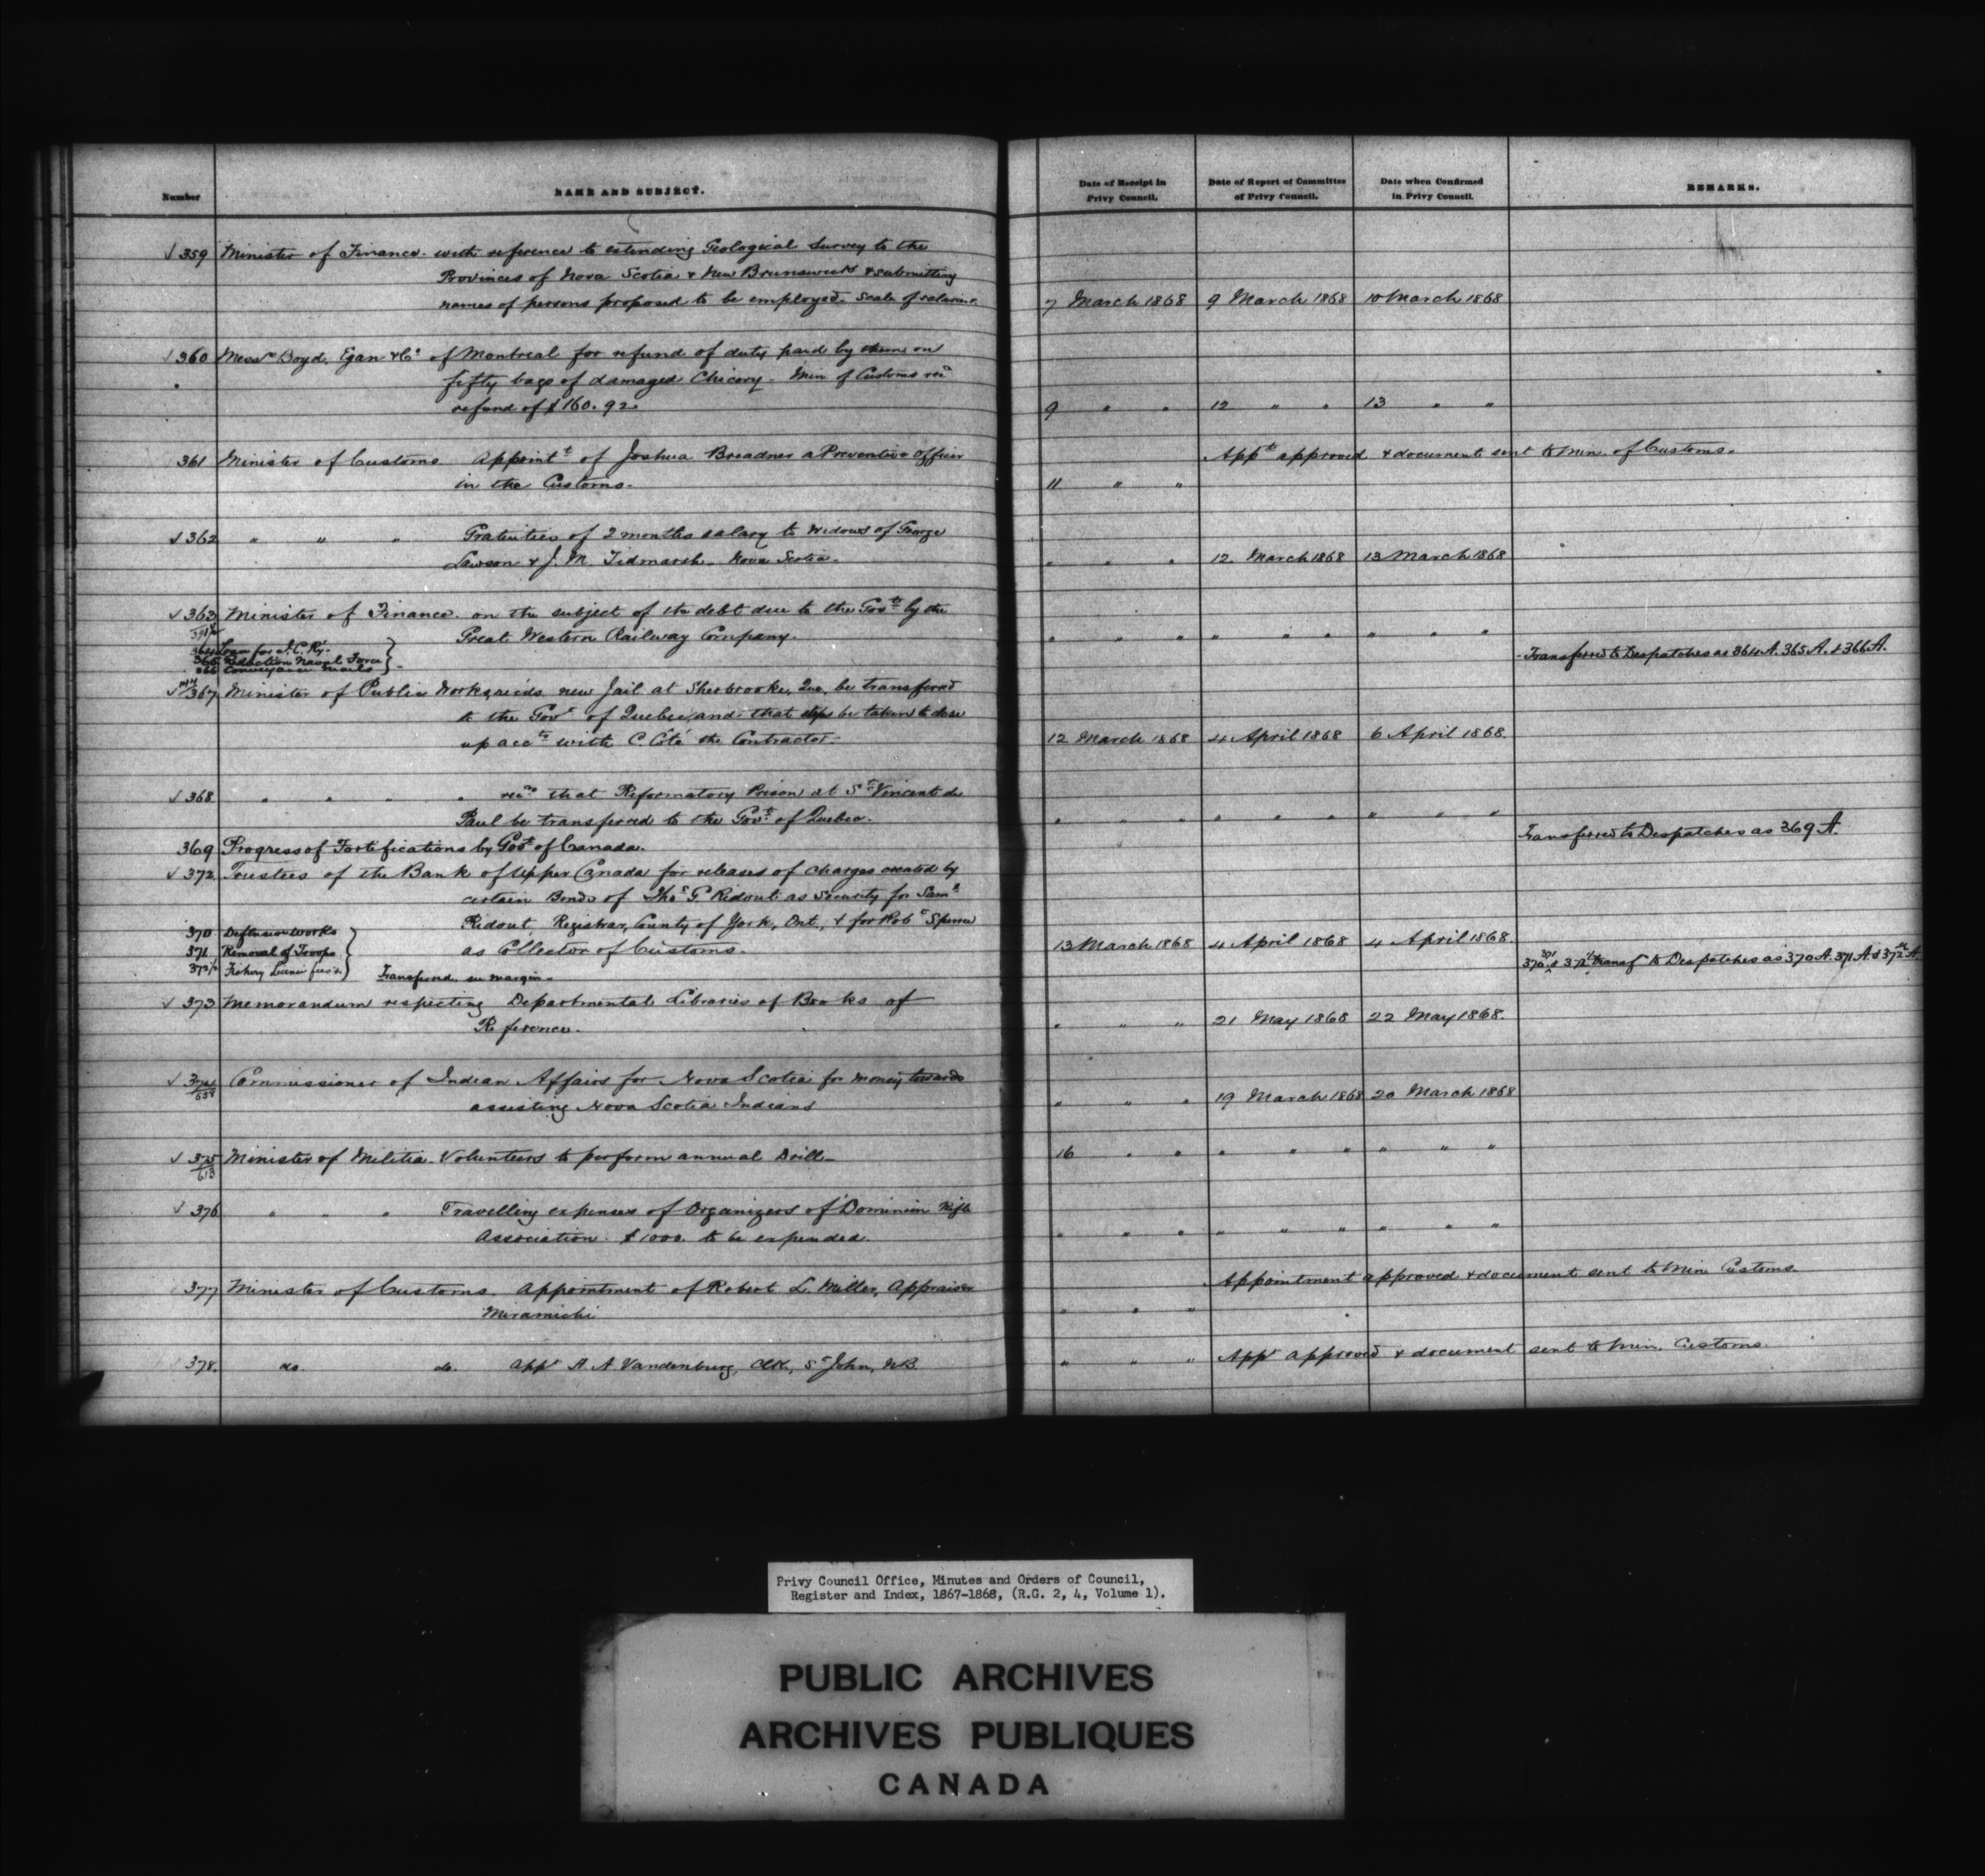 Number
NAME AND SUBJECT.
Date of Receipt in Privy Council.
Date of Report of Committee of Privy Council.
Date when Confirmed in Privy Council.
REMARKS.
√ 359 Minister of Finance. with reference to extending Geological Survey to the
Provinces of Nova Scotia & New Brunswick & submitting
names of persons proposed to be employed. Scale of salaries. 7 March 1868 9 March 1868 10 March 1868
√ 360 Messrs Boyd, Egan & Co of Montreal for refund of duty paid by them on
fifty bags of damaged Chicory - Min of Customs recd
refund of $160.92. 9 " " 12 " " 13 " "
361 Minister of Customs Appointt of Joshua Breadner a Preventive Officer Appt approved & document sent to Min. of Customs.
in the Customs. 11 " "
√ 362 " " " Gratuities of 2 months salary to Widows of George
Lawson & J. N. Tidmarsh. Nova Scotia. " " " 12 March 1868 13 March 1868
√ 363 Minister of Finance. on the subject of the debt due to the Govt by the
Great Western Railway Company. " " " " " " " " "
364 Loan for I.C. Ry.
365 Reduction Naval Force
366 Conveyance Mails
Transferred to Despatches as 364A. 365A. & 366A.
√ 367 Minister of Public Works, recds. new Jail at Sherbrooke, Que, be transferred
to the Govt of Quebec, and that steps be taken to close
up accts with C. Coté the Contractor. 12 March 1868 4 April 1868 6 April 1868.
√ 368 " " " " recds that Reformatory Prison at St Vincent de
Paul be transferred to the Govt of Quebec. " " " " " " " " "
369 Progress of Fortifications by Govt of Canada. Transferred to Despatches as 369 A.
√ 372 Trustees of the Bank of Upper Canada for releases of charges created by
certain Bonds of Thos G Ridout as Security for Saml
Ridout, Registrar, County of York, Ont., & for Robt Spence
as Collector of Customs. 13 March 1868 4 April 1868 4 April 1868.
370 Defensive Works
371 Removal of Troops
372½ Fishery License fees
Transferred. see margin.
370, 371 & 372½ transfd to Despatches as 370A. 371A & 372½A.
√ 373 Memorandum respecting Departmental Libraries of Books of
Reference. " " " 21 May 1868 22 May 1868.
√ 374 Commissioner of Indian Affairs for Nova Scotia for money towards
assisting Nova Scotia Indians " " " 19 March 1868 20 March 1868
√ 375 Minister of Militia. Volunteers to perform annual Drill. 16 " " " " " " " "
613
√ 376 " " " Travelling expenses of Organizers of Dominion Rifle
Association. $1000. to be expended. " " " " " " " " "
377 Minister of Customs. Appointment of Robert L. Miller, Appraiser Appointment approved & document sent to Min Customs.
Miramichi " " "
378. do. do. Appt A A Vandenburg, Clk, St John, NB. " " " Appt approved & document sent to Min. Customs.
Privy Council Office, Minutes and Orders of Council,
Register and Index, 1867-1868, (R.G. 2, 4, Volume 1).
PUBLIC ARCHIVES
ARCHIVES PUBLIQUES
CANADA